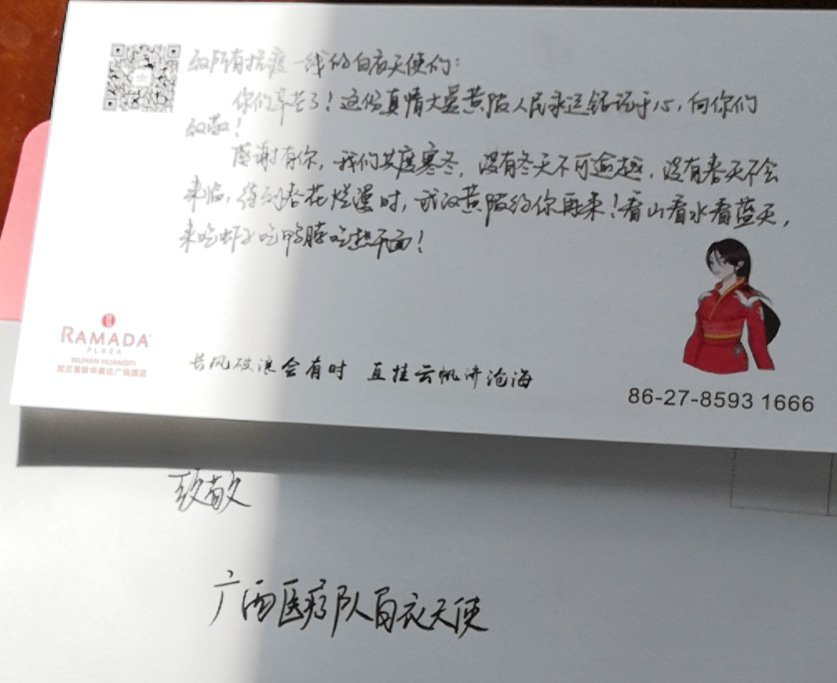 致所有抗疫一线的白衣天使们：
你们辛苦了！这份真情大爱黄陂人民永远铭记于心，向你们
致敬！
感谢有你，我们共度寒冬，没有冬天不可逾越，没有春天不会
来临，待到春花烂漫时，武汉黄陂约你再来！看山看水看蓝天，
来吃虾子吃鸭脖吃热干面！
RAMADA
PLAZA
WUHAN HUANGPI
武汉黄陂华美达广场酒店
长风破浪会有时 直挂云帆济沧海
86-27-8593 1666
致敬
广西医疗队白衣天使